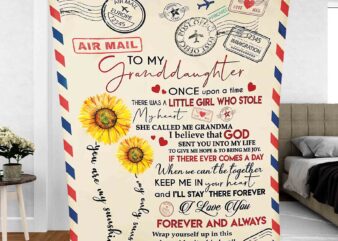 AIR MAIL
EUROPE
12345
IMMIGRATION
AIR MAIL
TO MY
Granddaughter
ONCE upon a time
THERE WAS A LITTLE GIRL WHO STOLE
My heart
SHE CALLED ME GRANDMA
I believe that GOD
SENT YOU INTO MY LIFE
TO GIVE ME HOPE & TO BRING ME JOY.
IF THERE EVER COMES A DAY
When we can't be together
KEEP ME IN your heart
and I'LL STAY THERE FOREVER
I Love You
FOREVER AND ALWAYS
Wrap yourself up in this
You are my sunshine
my only sunshine